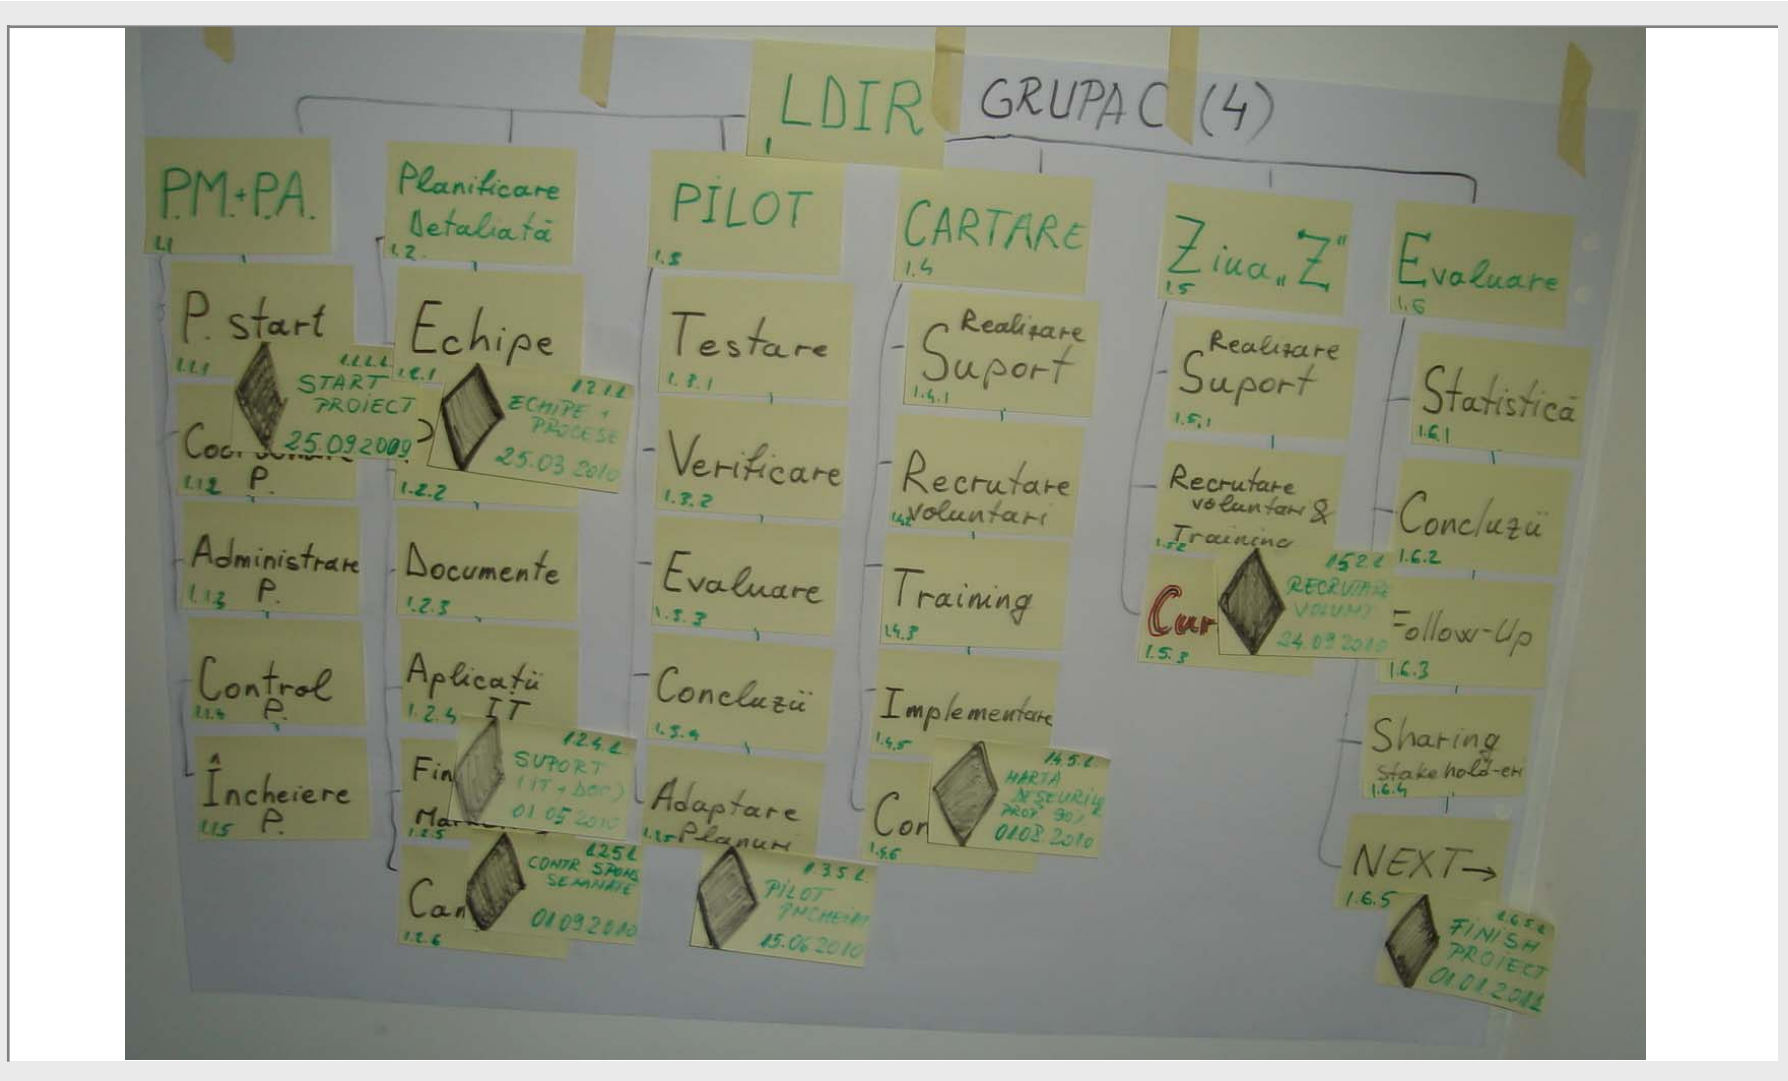 LDIR GRUPA C (4)
1
P.M.+P.A.
1.1
P. start
1.1.1
1.1.1.1.
START
PROIECT
25.09.2009
P.
1.1.2
Administrare
P.
1.1.3
Control
P.
1.1.4
Încheiere
P.
1.1.5
Planificare
Detaliată
1.2.
Echipe
1.2.1
1.2.1.1.
ECHIPE +
PROCESE
25.03.2010
1.2.2
Documente
1.2.3
Aplicații
IT
1.2.4
1.2.4.1
SUPORT
(IT + DOC)
01.05.2010
Fin
1.2.5
1.2.5.1
CONTR SPONS
SEMNATE
01.09.2010
Cam
1.2.6
PİLOT
1.3
Testare
1.3.1
Verificare
1.3.2
Evaluare
1.3.3
Concluzii
1.3.4
Adaptare
Planuri
1.3.5
1.3.5.1.
PİLOT
15.06.2010
CARTARE
1.4
Realizare
Suport
1.4.1
Recrutare
voluntari
1.4.2
Training
1.4.3
Implementare
1.4.5
1.4.5.1
HARTA
01.08.2010
Con
1.4.6
Ziua „Z"
1.5
Realizare
Suport
1.5.1
Recrutare
voluntari &
Training
1.5.2
1.5.2.1
RECRUTARE
VOLUNT
Cur
1.5.3
Evaluare
1.6
Statistică
1.6.1
Concluzii
1.6.2
Follow-Up
1.6.3
Sharing
Stakehold-eri
1.6.4
NEXT→
1.6.5
1.6.5.1
FINISH
PROIECT
01.01.2011